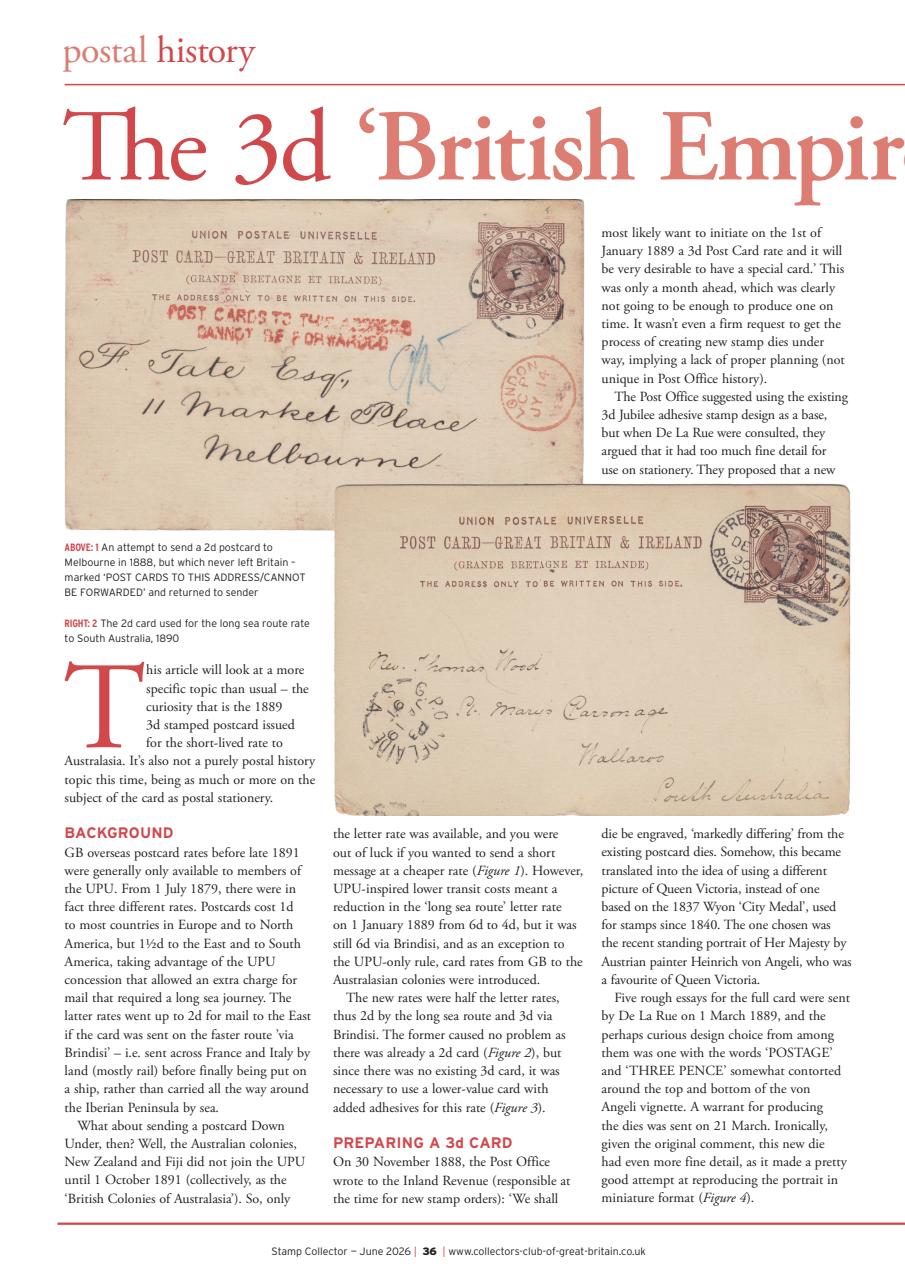 postal history
The 3d ‘British Empir
UNION POSTALE UNIVERSELLE
POST CARD—GREAT BRITAIN & IRELAND
(GRANDE BRETAGNE ET IRLANDE)
THE ADDRESS ONLY TO BE WRITTEN ON THIS SIDE.
POSTAGE
POST CARDS TO THIS ADDRESS
CANNOT BE FORWARDED
F. Tate Esq,
11 Market Place
Melbourne
LONDON
JY 14
most likely want to initiate on the 1st of
January 1889 a 3d Post Card rate and it will
be very desirable to have a special card.’ This
was only a month ahead, which was clearly
not going to be enough to produce one on
time. It wasn’t even a firm request to get the
process of creating new stamp dies under
way, implying a lack of proper planning (not
unique in Post Office history).
The Post Office suggested using the existing
3d Jubilee adhesive stamp design as a base,
but when De La Rue were consulted, they
argued that it had too much fine detail for
use on stationery. They proposed that a new
UNION POSTALE UNIVERSELLE
POST CARD—GREAT BRITAIN & IRELAND
(GRANDE BRETAGNE ET IRLANDE)
THE ADDRESS ONLY TO BE WRITTEN ON THIS SIDE.
Rev. Thomas Wood
St. Marys Parsonage
Wallaroo
South Australia
ABOVE: 1 An attempt to send a 2d postcard to
Melbourne in 1888, but which never left Britain –
marked ‘POST CARDS TO THIS ADDRESS/CANNOT
BE FORWARDED’ and returned to sender
RIGHT: 2 The 2d card used for the long sea route rate
to South Australia, 1890
This article will look at a more
specific topic than usual – the
curiosity that is the 1889
3d stamped postcard issued
for the short-lived rate to
Australasia. It’s also not a purely postal history
topic this time, being as much or more on the
subject of the card as postal stationery.
BACKGROUND
GB overseas postcard rates before late 1891
were generally only available to members of
the UPU. From 1 July 1879, there were in
fact three different rates. Postcards cost 1d
to most countries in Europe and to North
America, but 1½d to the East and to South
America, taking advantage of the UPU
concession that allowed an extra charge for
mail that required a long sea journey. The
latter rates went up to 2d for mail to the East
if the card was sent on the faster route ’via
Brindisi’ – i.e. sent across France and Italy by
land (mostly rail) before finally being put on
a ship, rather than carried all the way around
the Iberian Peninsula by sea.
What about sending a postcard Down
Under, then? Well, the Australian colonies,
New Zealand and Fiji did not join the UPU
until 1 October 1891 (collectively, as the
‘British Colonies of Australasia’). So, only
the letter rate was available, and you were
out of luck if you wanted to send a short
message at a cheaper rate (Figure 1). However,
UPU-inspired lower transit costs meant a
reduction in the ‘long sea route’ letter rate
on 1 January 1889 from 6d to 4d, but it was
still 6d via Brindisi, and as an exception to
the UPU-only rule, card rates from GB to the
Australasian colonies were introduced.
The new rates were half the letter rates,
thus 2d by the long sea route and 3d via
Brindisi. The former caused no problem as
there was already a 2d card (Figure 2), but
since there was no existing 3d card, it was
necessary to use a lower-value card with
added adhesives for this rate (Figure 3).
PREPARING A 3d CARD
On 30 November 1888, the Post Office
wrote to the Inland Revenue (responsible at
the time for new stamp orders): ‘We shall
die be engraved, ‘markedly differing’ from the
existing postcard dies. Somehow, this became
translated into the idea of using a different
picture of Queen Victoria, instead of one
based on the 1837 Wyon ‘City Medal’, used
for stamps since 1840. The one chosen was
the recent standing portrait of Her Majesty by
Austrian painter Heinrich von Angeli, who was
a favourite of Queen Victoria.
Five rough essays for the full card were sent
by De La Rue on 1 March 1889, and the
perhaps curious design choice from among
them was one with the words ‘POSTAGE’
and ‘THREE PENCE’ somewhat contorted
around the top and bottom of the von
Angeli vignette. A warrant for producing
the dies was sent on 21 March. Ironically,
given the original comment, this new die
had even more fine detail, as it made a pretty
good attempt at reproducing the portrait in
miniature format (Figure 4).
Stamp Collector – June 2026 | 36 | www.collectors-club-of-great-britain.co.uk